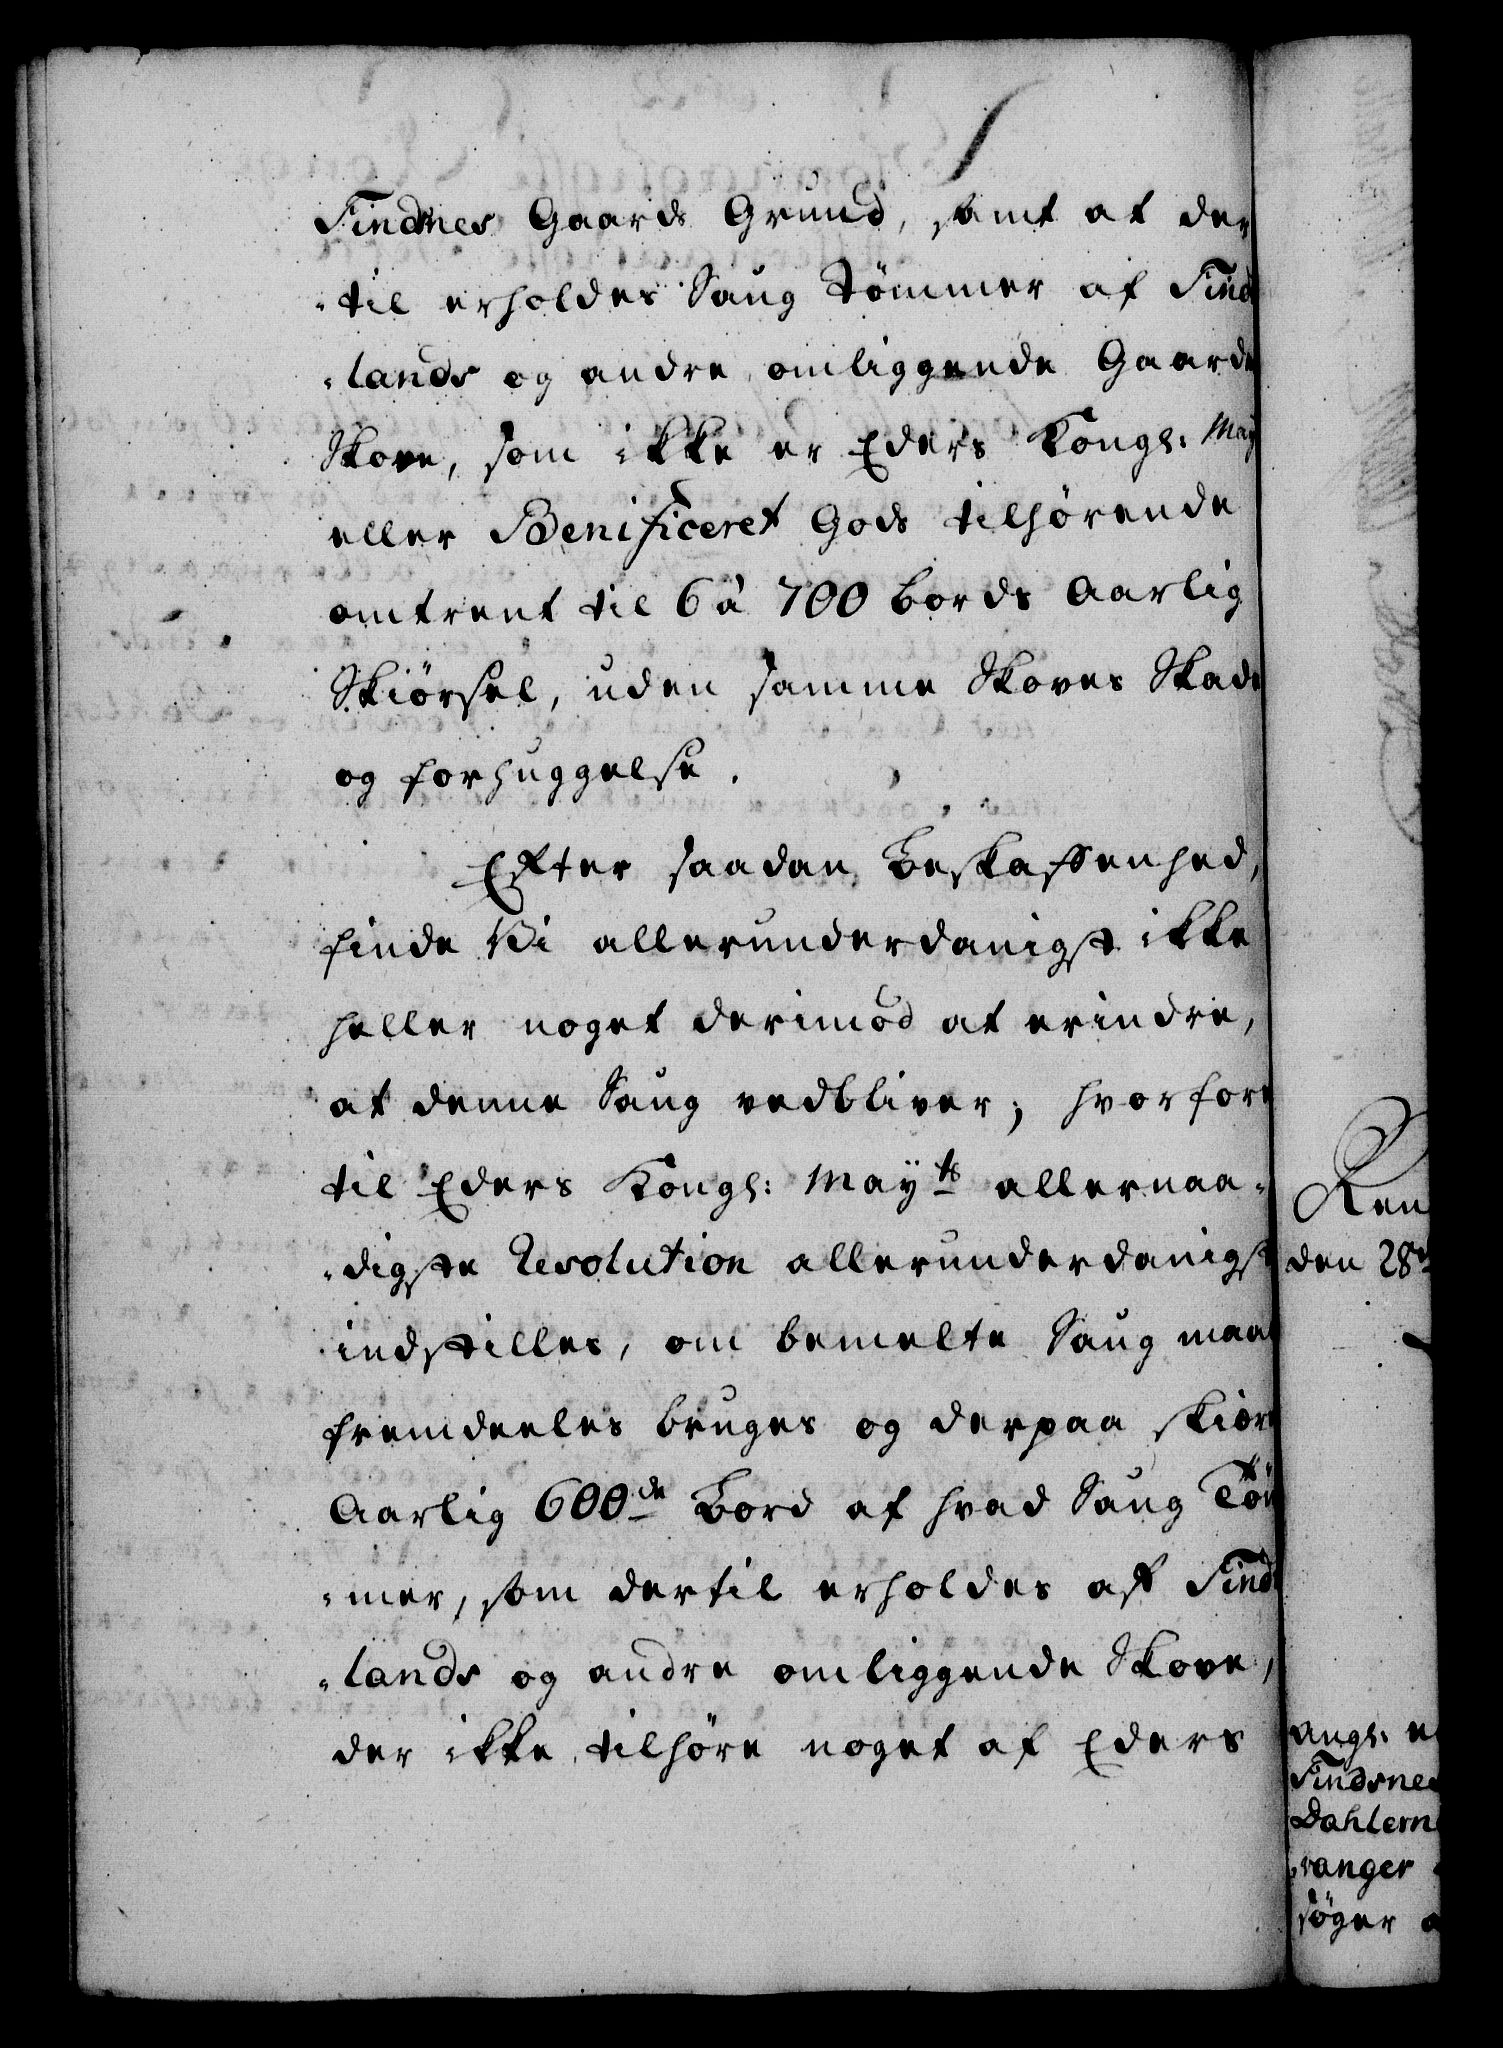 Findnes Gaards Grund, samt at der
"til erholdes Saug Tömmer af Find
"lands og andre omliggende Gaarde
Skove, som ikke er Eders Kongl: May
eller Benificeret Gods tilhørende
omtrent til 6 à 700 bords Aarlig
Skiørsel, uden samme Skoves Skade
og forhuggelse.
Efter saadan Beskaffenhed,
finde Vi allerunderdanigst ikke
heller noget derimod at erindre,
at denne Saug vedbliver; hvorfore
til Eders Kongl: Mayts allernaa-
"digste Resolution allerunderdanigst
indstilles, om bemelte Saug maae
fremdeeles bruges og derpaa skiære
Aarlig 600de Bord af hvad Saug Töm
"mer, som dertil erholdes af Find
"lands og andre omliggende Skove,
der ikke tilhöre noget af Eders
Ren
den 28
angl. e
Findsnes
Dahlern
"ranger
söger a